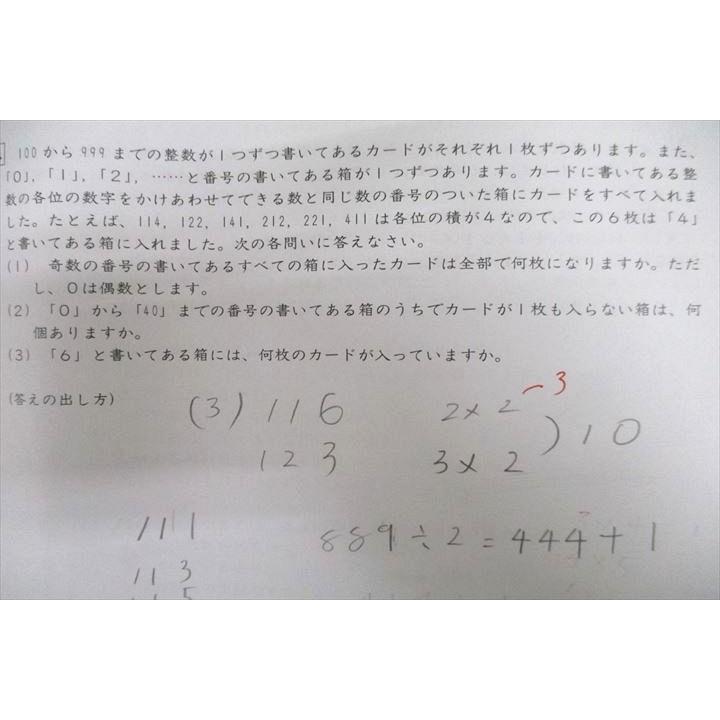 100から999までの整数が1つずつ書いてあるカードがそれぞれ1枚ずつあります。また、
「0」,「1」,「2」, ……と番号の書いてある箱が1つずつあります。カードに書いてある整
数の各位の数字をかけあわせてできる数と同じ数の番号のついた箱にカードをすべて入れま
した。たとえば、114, 122, 141, 212, 221, 411は各位の積が4なので、この6枚は「4」
と書いてある箱に入れました。次の各問いに答えなさい。
(1) 奇数の番号の書いてあるすべての箱に入ったカードは全部で何枚になりますか。ただ
し、0は偶数とします。
(2) 「0」から「40」までの番号の書いてある箱のうちでカードが1枚も入らない箱は、何
個ありますか。
(3) 「6」と書いてある箱には、何枚のカードが入っていますか。
(答えの出し方)
(3) 116 2×2 ー3
123 3×2 ) 10
111 889÷2=444+1
113